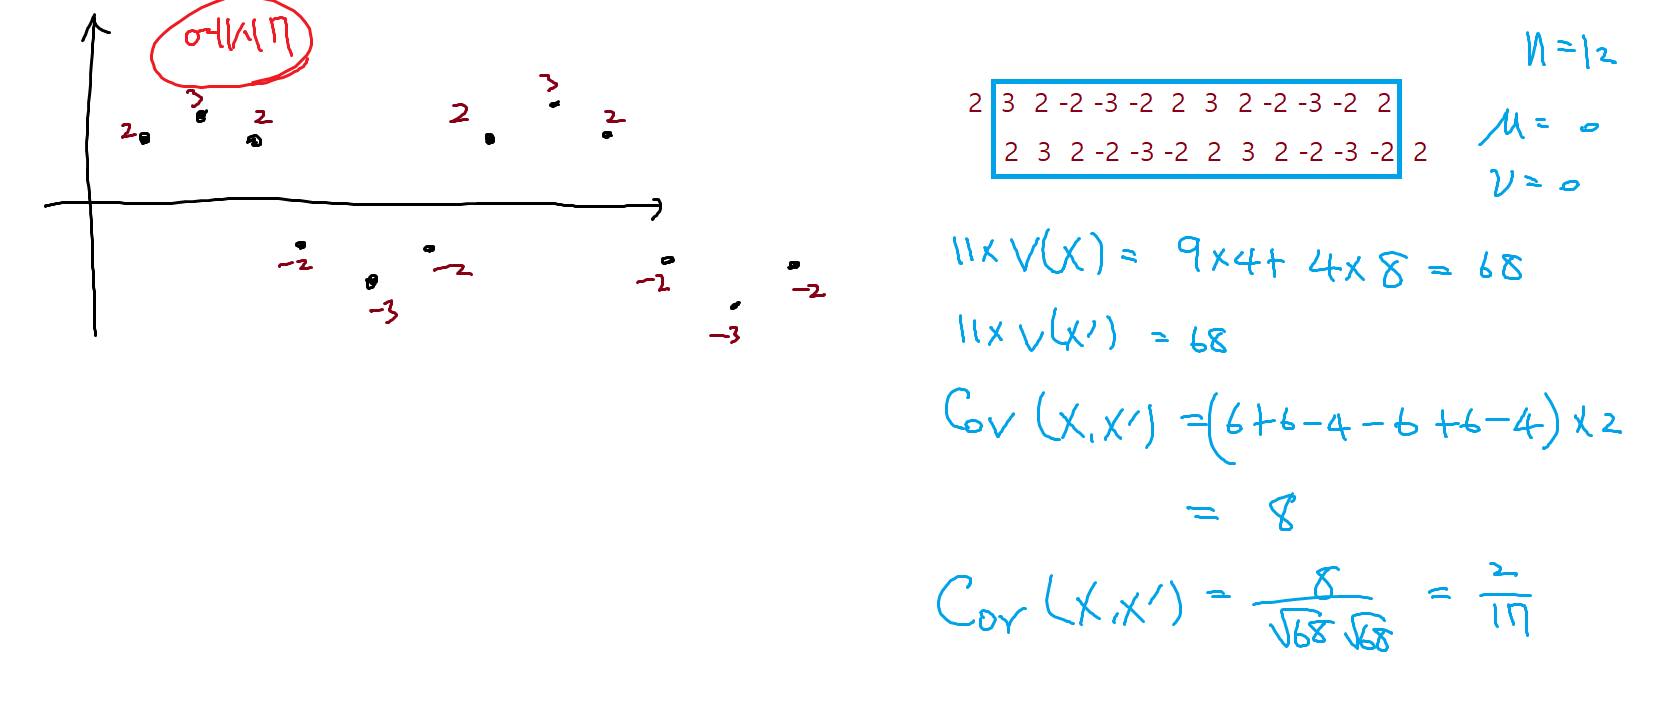 2 3 2 -2 -3 -2 2 3 2 -2 -3 -2
n=12
2 3 2 -2 -3 -2 2 3 2 -2 -3 -2 2
μ= 0
2 3 2 -2 -3 -2 2 3 2 -2 -3 -2 2
ν= 0
11x V(X) = 9x4+ 4x8 = 68
11x V(X') = 68
Cov (X,X') =(6+6-4-6+6-4)x2
= 8
Cor (X,X') = 8/√68√68 = 2/17